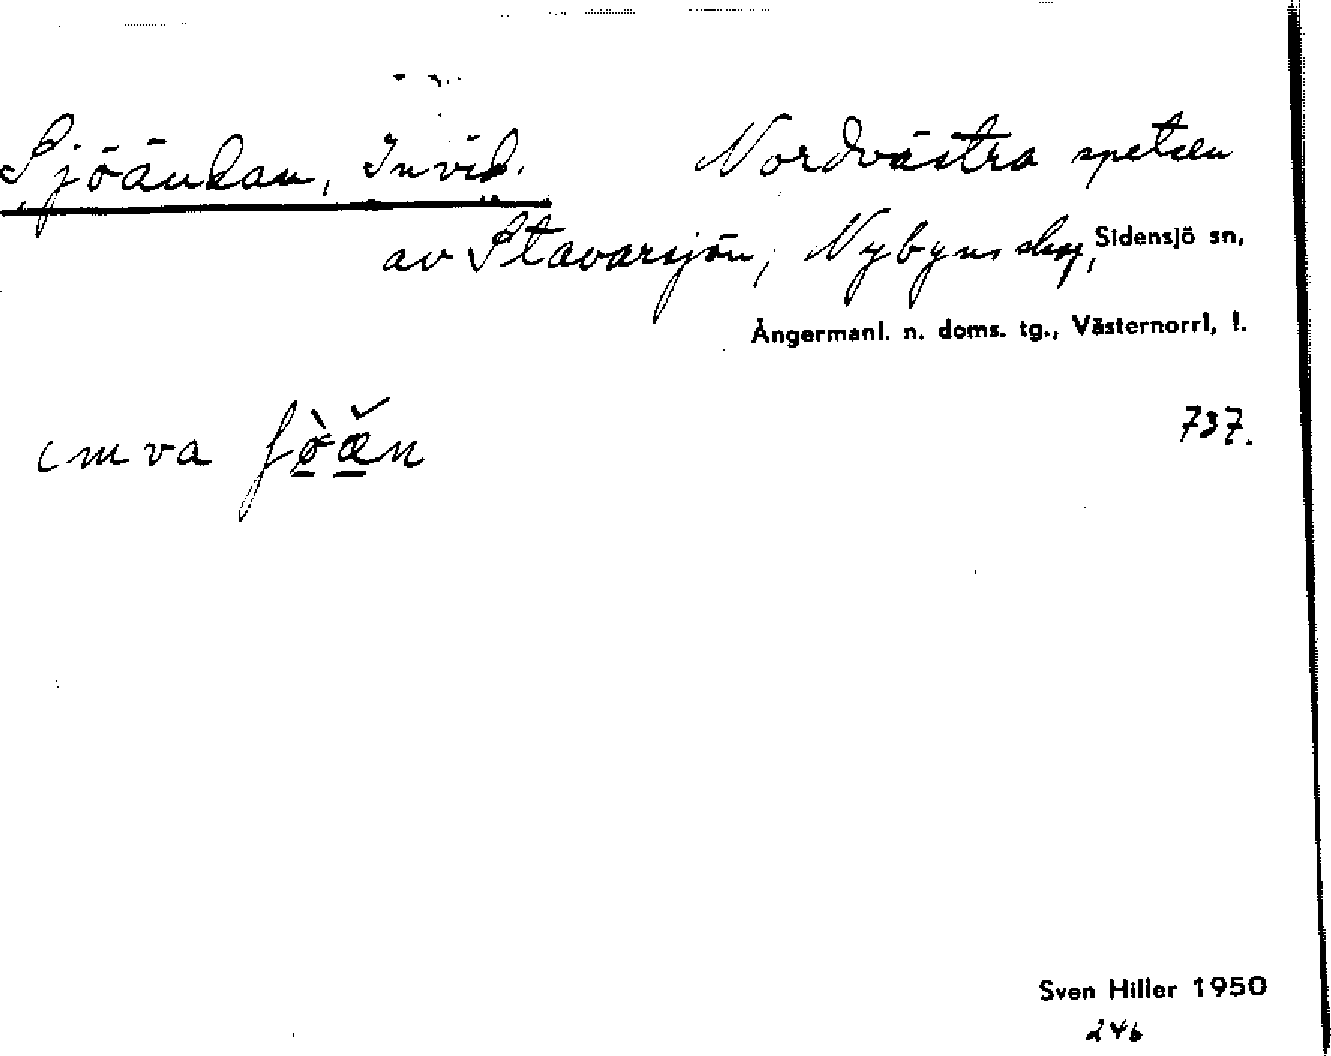 Sjöändan, Invid. Nordvästra spetsen
av Stavarsjön, Nybyns skog, Sidensjö sn,
Ångermanl. n. doms. tg., Västernorrl, l.
ɩmva ʃø̀æ̌n 737.
Sven Hiller 1950
246